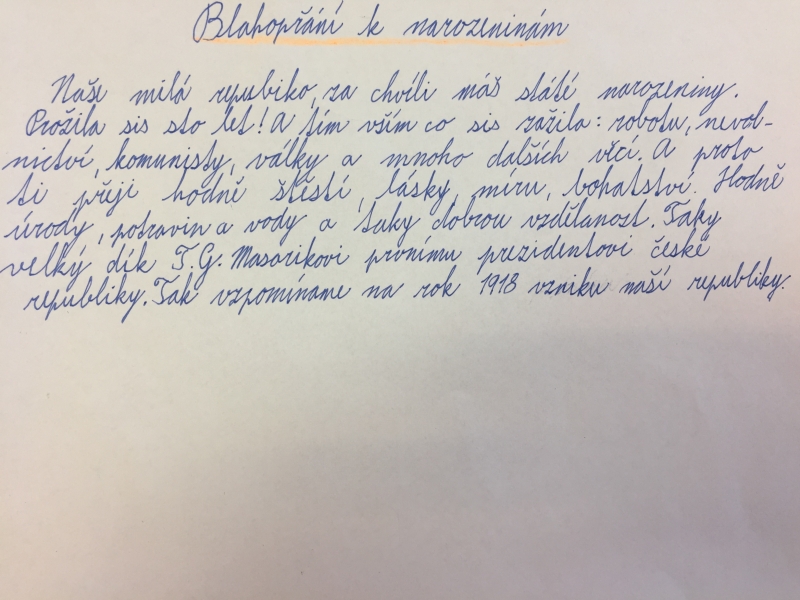 Blahopřání k narozeninám
Naše milá repubiko, za chvíli máš státé narozeniny.
Prožila sis sto let! A tím vším co sis zažila: robotu, nevol-
nictví, komunisty, války a mnoho dalších věcí. A proto
ti přeji hodně štěstí, lásky, míru, bohatství. Hodně
úrody, potravin a vody a taky dobrou vzdělanost. Taky
velký dík T.G. Masarikovi prvnímu prezidentovi české
republiky. Tak vzpomíname na rok 1918 vzniku naší republiky.